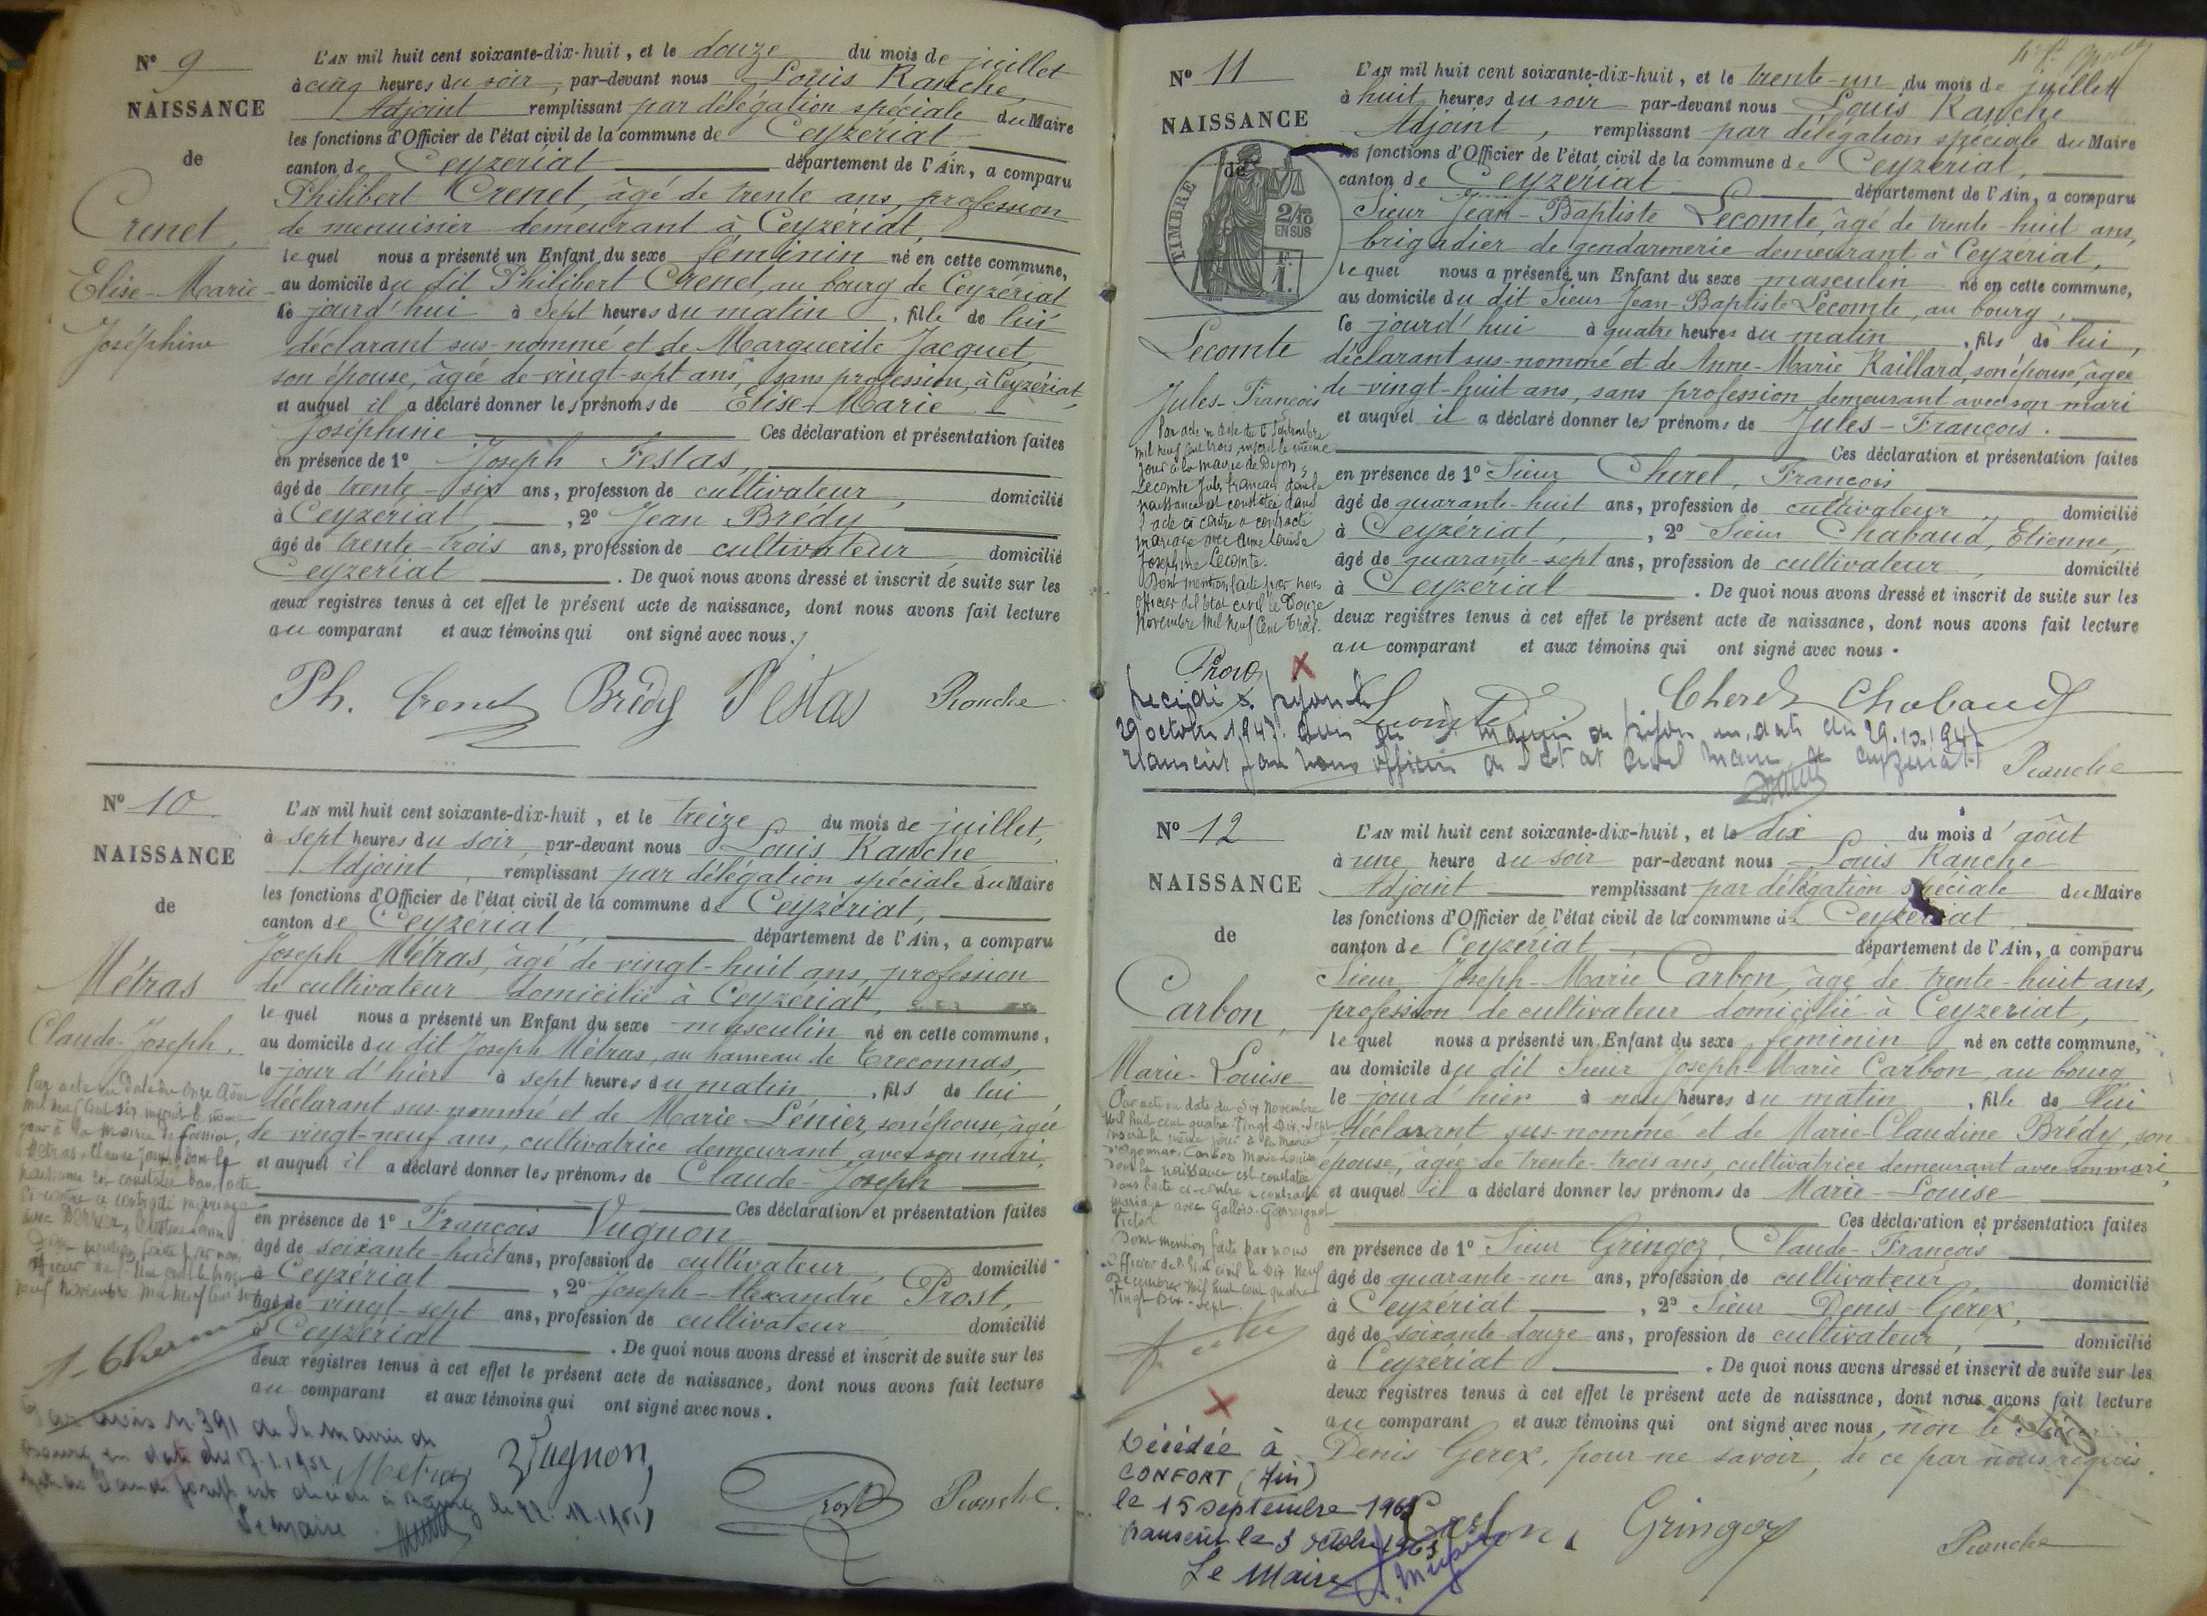 N° 9
NAISSANCE
de
Crenet,
Elise-Marie-
Joséphine
L'AN mil huit cent soixante-dix-huit, et le douze du mois de juillet
à cinq heures du soir, par-devant nous Louis Ranche,
Adjoint remplissant par délégation spéciale du Maire
les fonctions d'Officier de l'état civil de la commune de Ceyzériat,
canton de Ceyzériat département de l'Ain, a comparu
Philibert Crenet, âgé de trente ans, profession
de menuisier demeurant à Ceyzériat,
le quel nous a présenté un Enfant du sexe féminin né en cette commune,
au domicile du dit Philibert Crenet, au bourg de Ceyzériat
le jourd'hui à sept heures du matin, fille de lui
déclarant sus-nommé et de Marguerite Jacquet,
son épouse, âgée de vingt-sept ans, sans profession, à Ceyzériat,
et auquel il a déclaré donner les prénoms de Elise-Marie
Joséphine Ces déclaration et présentation faites
en présence de 1° Joseph Festas,
âgé de trente-six ans, profession de cultivateur, domicilié
à Ceyzériat, 2° Jean Brédy
âgé de trente-trois ans, profession de cultivateur, domicilié
Ceyzériat. De quoi nous avons dressé et inscrit de suite sur les
deux registres tenus à cet effet le présent acte de naissance, dont nous avons fait lecture
au comparant et aux témoins qui ont signé avec nous.
Ph. Crenet Brédy Festas Ranche
N° 10
NAISSANCE
de
Métras
Claude-Joseph.
Par acte en date du onze Août
L'AN mil huit cent soixante-dix-huit, et le treize du mois de juillet,
à sept heures du soir par-devant nous Louis Ranche
Adjoint, remplissant par délégation spéciale du Maire
les fonctions d'Officier de l'état civil de la commune de Ceyzériat,
canton de Ceyzériat département de l'Ain, a comparu
Joseph Métras, âgé de vingt-huit ans, profession
de cultivateur domicilié à Ceyzériat,
le quel nous a présenté un Enfant du sexe masculin né en cette commune,
au domicile du dit Joseph Métras, au hameau de Treconnas,
le jour d'hier à sept heures du matin, fils de lui
déclarant sus-nommé et de Marie Lénier, son épouse, âgée
de vingt-neuf ans, cultivatrice demeurant avec son mari,
et auquel il a déclaré donner les prénoms de Claude-Joseph
Ces déclaration et présentation faites
en présence de 1° François Vugnon
âgé de soixante-huit ans, profession de cultivateur, domicilié
à Ceyzériat, 2° Joseph-Alexandre Prost,
âgé de vingt-sept ans, profession de cultivateur, domicilié
à Ceyzériat. De quoi nous avons dressé et inscrit de suite sur les
deux registres tenus à cet effet le présent acte de naissance, dont nous avons fait lecture
au comparant et aux témoins qui ont signé avec nous.
avis n 391 de la mairie de
en date du 17.1.1952
Le maire
Métras Vugnon Prost Ranche.
N° 11
NAISSANCE
de
TIMBRE
2/10
EN SUS
F.
1.
Lecomte
Jules-François
Par acte en date du 5 Septembre
mil neuf cent trois, inscrit le même
jour à la mairie de Dijon,
Lecomte Jules François dont la
naissance est constatée dans
l'acte ci contre a contracté
mariage avec Anne Louise
Joséphine Lecomte.
Dont mention faite par nous
Officier de l'Etat civil le Douze
Novembre mil neuf Cent Trois.
L'AN mil huit cent soixante-dix-huit, et le trente-un du mois de juillet
à huit heures du soir par-devant nous Louis Ranche
Adjoint, remplissant par délégation spéciale du Maire
les fonctions d'Officier de l'état civil de la commune de Ceyzériat,
canton de Ceyzériat département de l'Ain, a comparu
Sieur Jean-Baptiste Lecomte, âgé de trente-huit ans,
brigadier de gendarmerie demeurant à Ceyzériat,
le quel nous a présenté un Enfant du sexe masculin né en cette commune,
au domicile du dit Sieur Jean-Baptiste Lecomte, au bourg,
le jourd'hui à quatre heures du matin, fils de lui,
déclarant sus-nommé et de Anne-Marie Raillard, son épouse, âgée
de vingt-huit ans, sans profession demeurant avec son mari
et auquel il a déclaré donner les prénoms de Jules-François.
Ces déclaration et présentation faites
en présence de 1° Sieur Cherel, François
âgé de quarante-huit ans, profession de cultivateur, domicilié
à Ceyzériat, 2° Sieur Chabaud, Etienne,
âgé de quarante-sept ans, profession de cultivateur, domicilié
à Ceyzériat. De quoi nous avons dressé et inscrit de suite sur les
deux registres tenus à cet effet le présent acte de naissance, dont nous avons fait lecture
au comparant et aux témoins qui ont signé avec nous.
Lecomte Cherel Chabaud
29 octobre 1947. en date du 29.10.1947
transcrit par nous officier de l'état civil
Ranche
N° 12
NAISSANCE
de
Carbon,
Marie-Louise
Par acte en date du six Novembre
Mil huit cent quatre Vingt Dix-Sept
inscrit le même jour à la Mairie
Carbon Marie Louise
dont la naissance est constatée
dans l'acte ci-contre a contracté
mariage avec Gallois
Victor
Dont mention faite par nous
Officier de l'Etat civil le Dix Neuf
Mil huit cent quatre
Vingt Dix-Sept
L'AN mil huit cent soixante-dix-huit, et le dix du mois d'août
à une heure du soir par-devant nous Louis Ranche
Adjoint remplissant par délégation spéciale du Maire
les fonctions d'Officier de l'état civil de la commune de Ceyzériat,
canton de Ceyzériat département de l'Ain, a comparu
Sieur Joseph-Marie Carbon, âgé de trente-huit ans,
profession de cultivateur domicilié à Ceyzériat,
le quel nous a présenté un Enfant du sexe féminin né en cette commune,
au domicile du dit Sieur Joseph-Marie Carbon, au bourg
le jour d'hier à neuf heures du matin, fille de lui
déclarant sus-nommé et de Marie-Claudine Brédy, son
épouse, âgée de trente-trois ans, cultivatrice demeurant avec son mari,
et auquel il a déclaré donner les prénoms de Marie-Louise
Ces déclaration et présentation faites
en présence de 1° Sieur Gringoz, Claude-François
âgé de quarante-un ans, profession de cultivateur, domicilié
à Ceyzériat, 2° Sieur Denis Gerex,
âgé de soixante-douze ans, profession de cultivateur, domicilié
à Ceyzériat. De quoi nous avons dressé et inscrit de suite sur les
deux registres tenus à cet effet le présent acte de naissance, dont nous avons fait lecture
au comparant et aux témoins qui ont signé avec nous, non le Sieur
Denis Gerex, pour ne savoir, de ce par nous requis.
Décédée à
CONFORT (Ain)
le 15 septembre 1963
Transcrit le 3 octobre 1963
Le Maire
Carbon, Gringoz Ranche